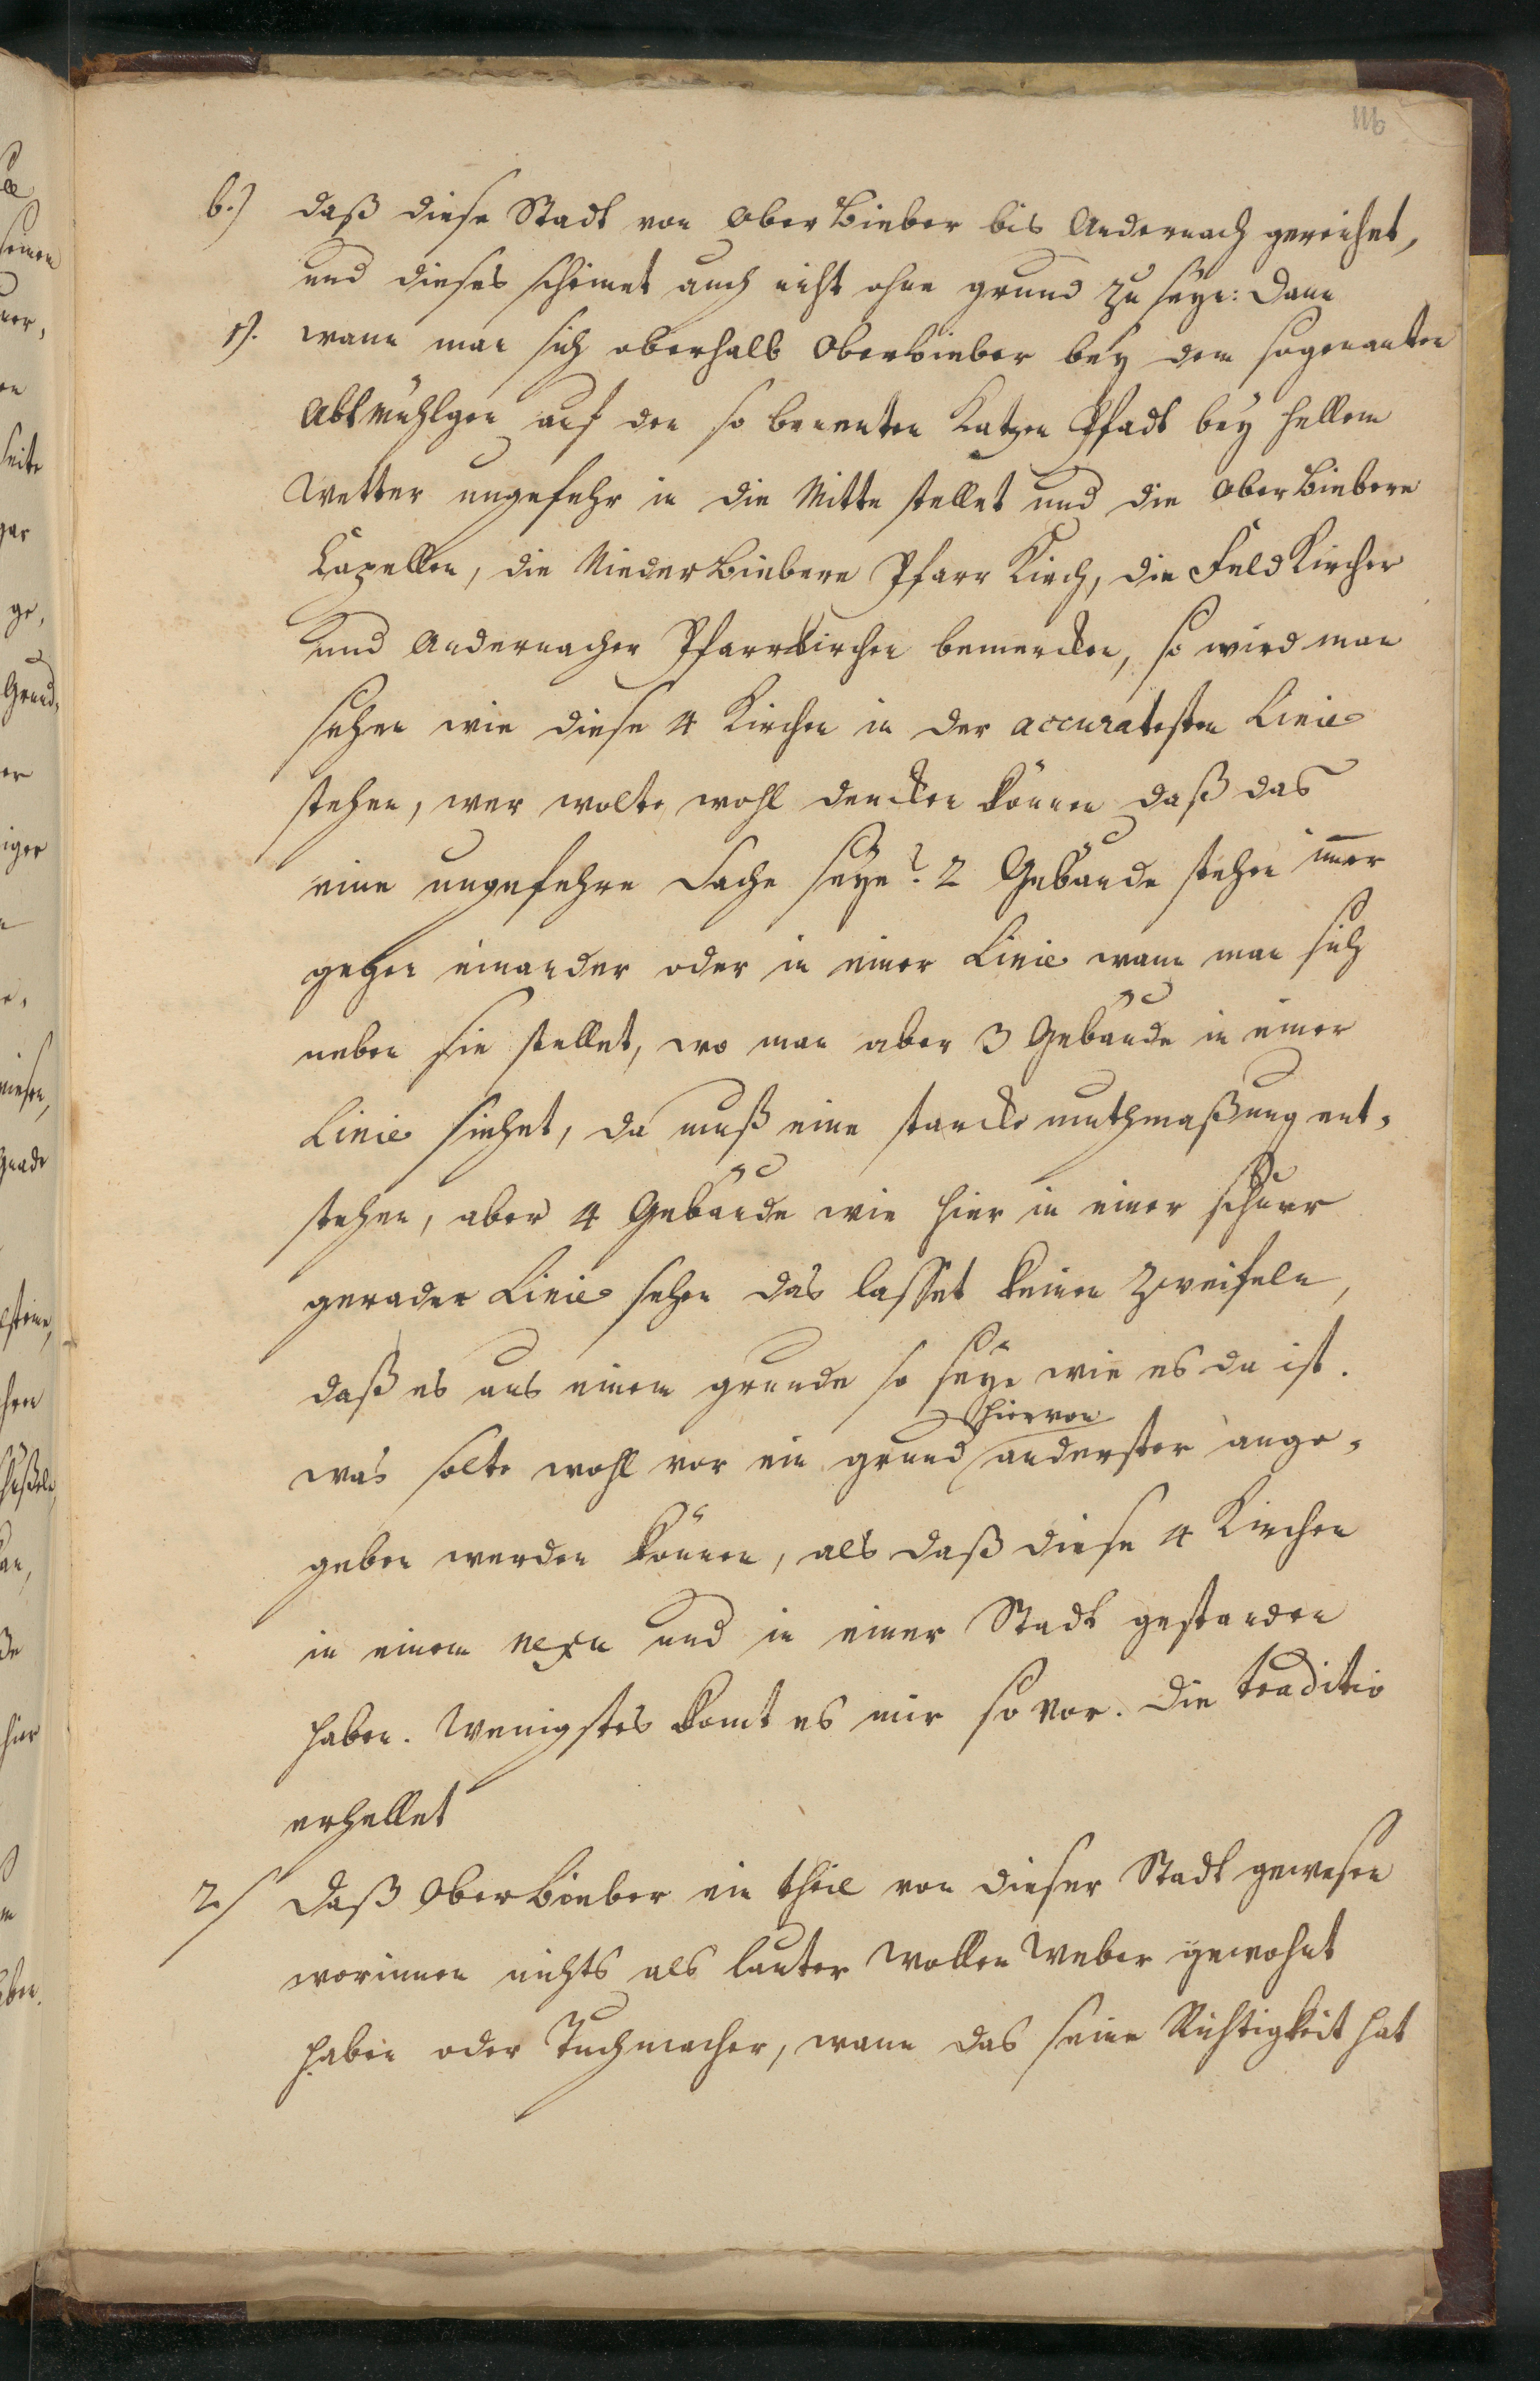 116
b.) daß diese Stadt von Ober Bieber bis Andernach gereichet,
und dieses scheinet auch nicht ohne grund zu seyn: dann
1). wann man sich oberhalb Oberbieber bey dem sogenanten
Abtmühlgen auf den so benenten Katzen Pfadt bey hellem
Wetter ungefehr in die Mitte stellet und die Ober Biebere
Capellen, die Nieder Biebere Pfarr Kirch, die Feld Kircher
und Andernacher Pfarrkirchen bemercken, so wird man
sehen wie diese 4 Kirchen in der accuratesten Linie
stehen, wer wolte wohl dencken können daß das
eine ungefehre Sache seye? 2 Gebäude stehen im̅er
gegen einander oder in einer Linie wann man sich
neben sie stellet, wo man aber 3 Gebäude in einer
Linie siehet, da muß eine starcke muthmaßung ent-
stehen, aber 4 Gebäude wie hier in einer schnur
gerader Linie sehen das lasset keinen Zweifeln,
daß es aus einem grunde so seye wie es da ist.
hiervon
was solte wohl vor ein grund anderster ange-
geben werden können, als daß diese 4 Kirchen
in einem nexu und in einer Stadt gestanden
haben. Wenigstes komt es mir so vor. Die traditio
erhellet
2./ daß Ober Bieber ein theil von dieser Stadt gewesen
worinnen nichts als lauter Wollen Weber gewohnt
haben oder Tuchmacher, wann das seine Richtigkeit hat